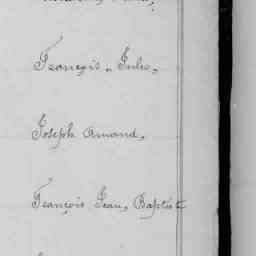 François, Jules,
Joseph Amand,
François Jean, Baptiste